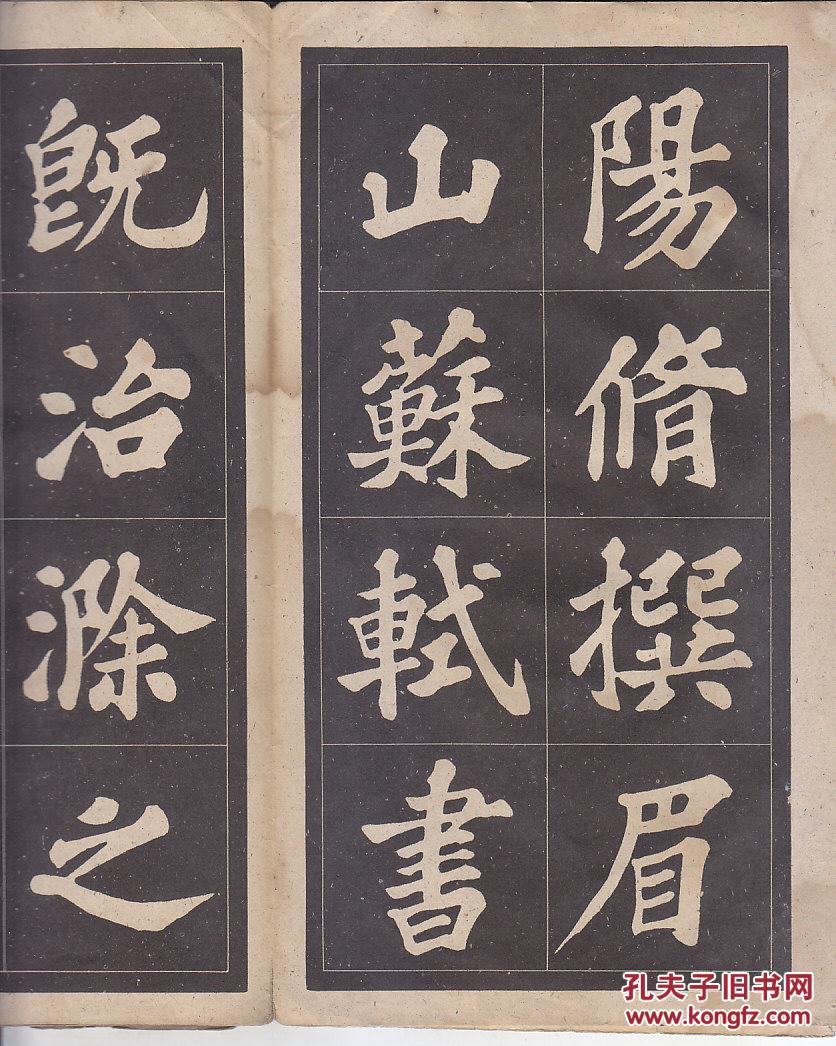 陽脩撰眉
山蘇軾書
既治滁之
孔夫子旧书网
www.kongfz.com